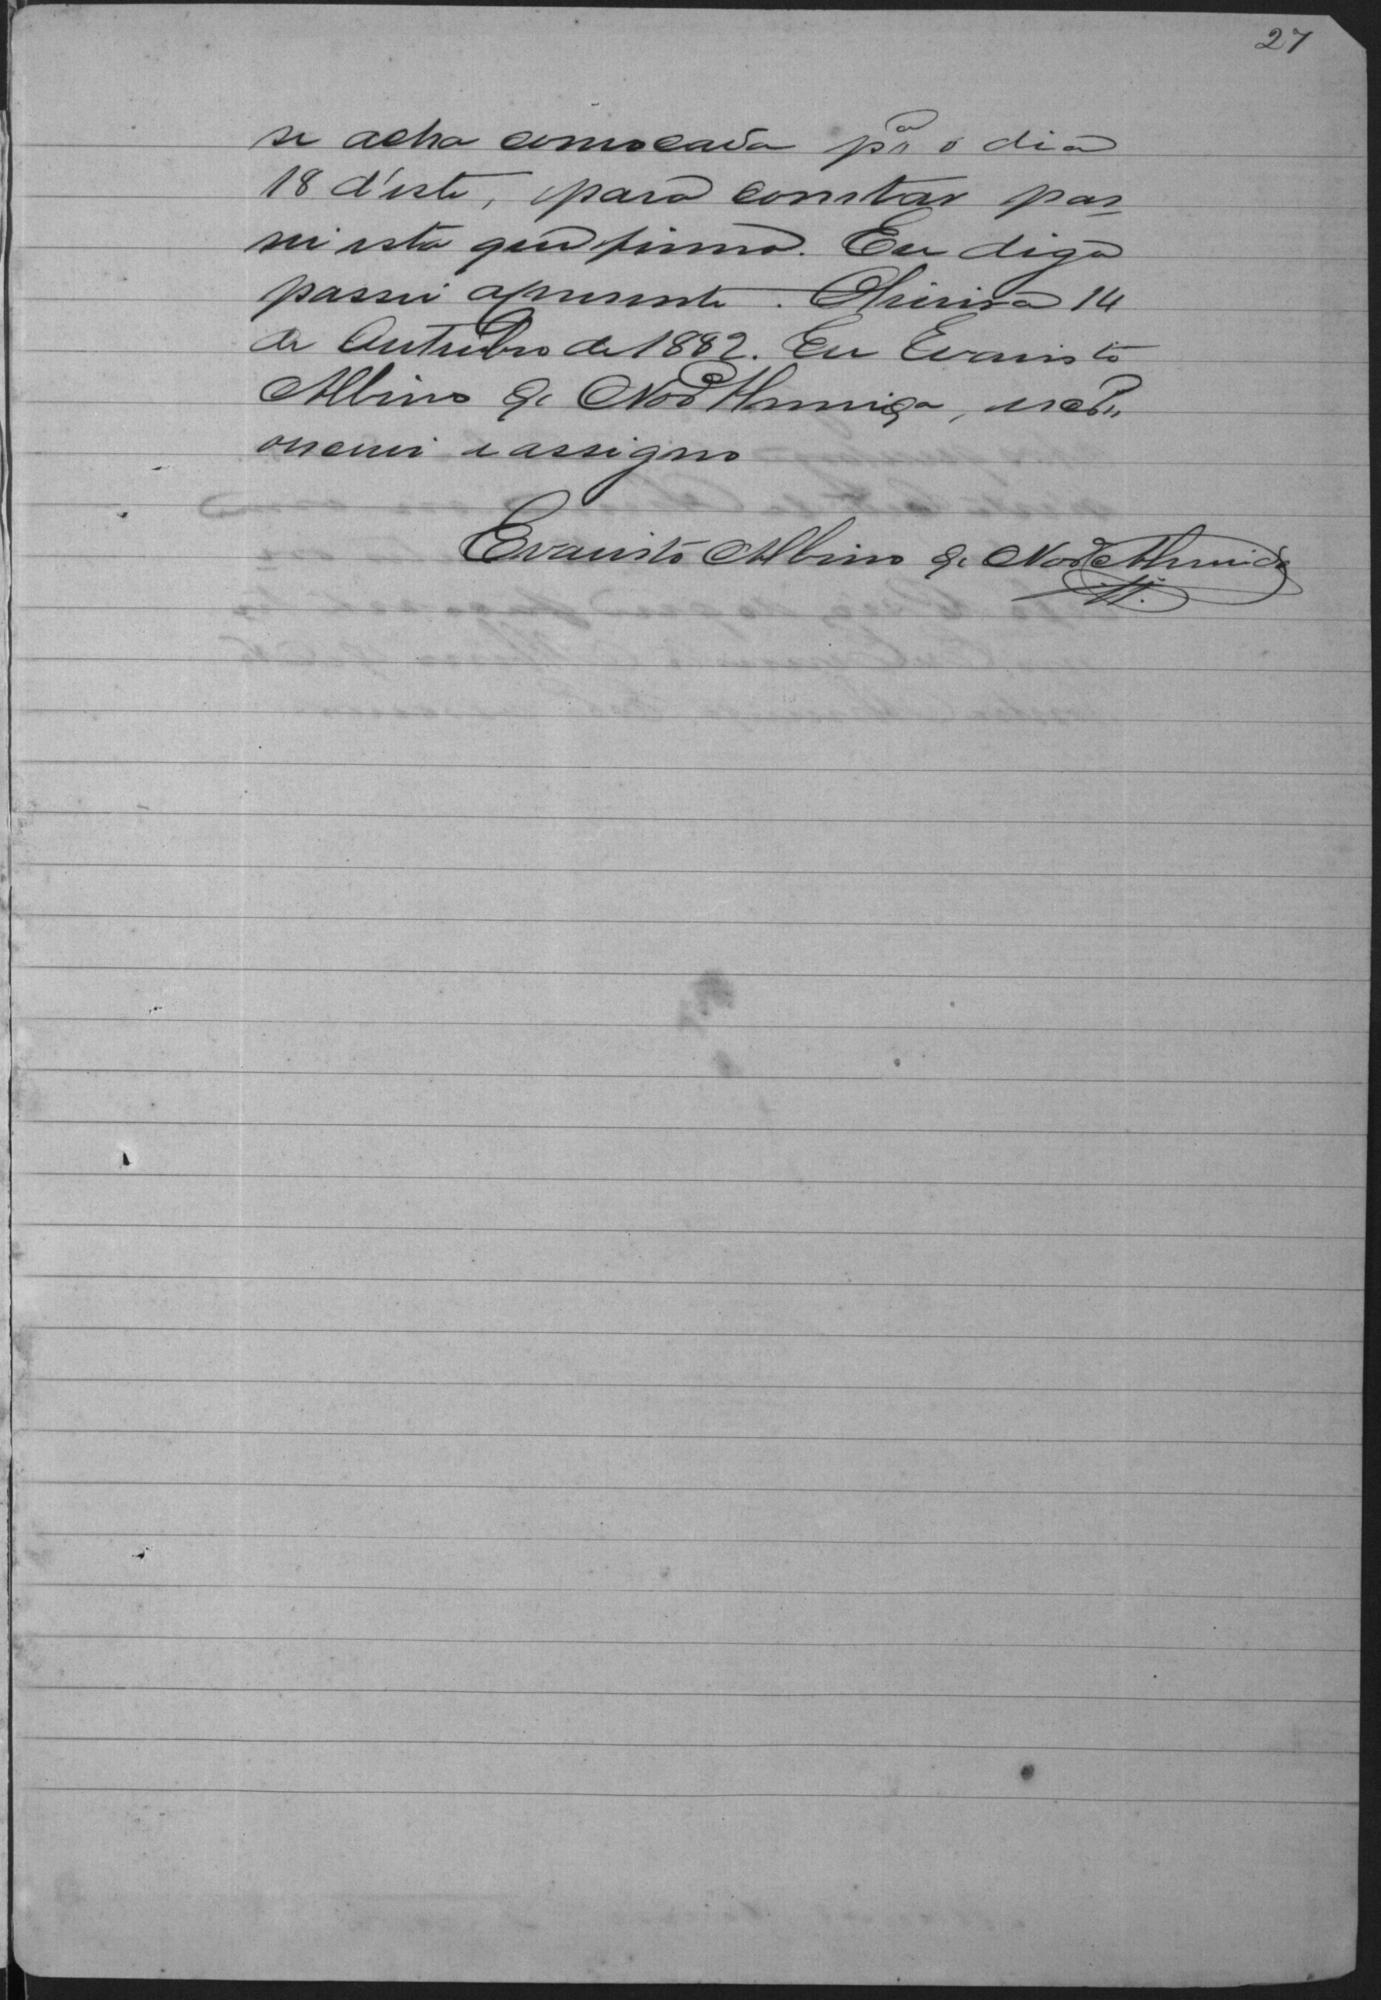 27
se acha convocada pª o dia
18 d'este, para constar pas-
sei esta que firmo. Eu digo
passei a presente. Oliveira 14
de Outubro de 1882. Eu Evaristo
Albino de Almeida,
escrevi e assigno
Evaristo Albino de Almeida